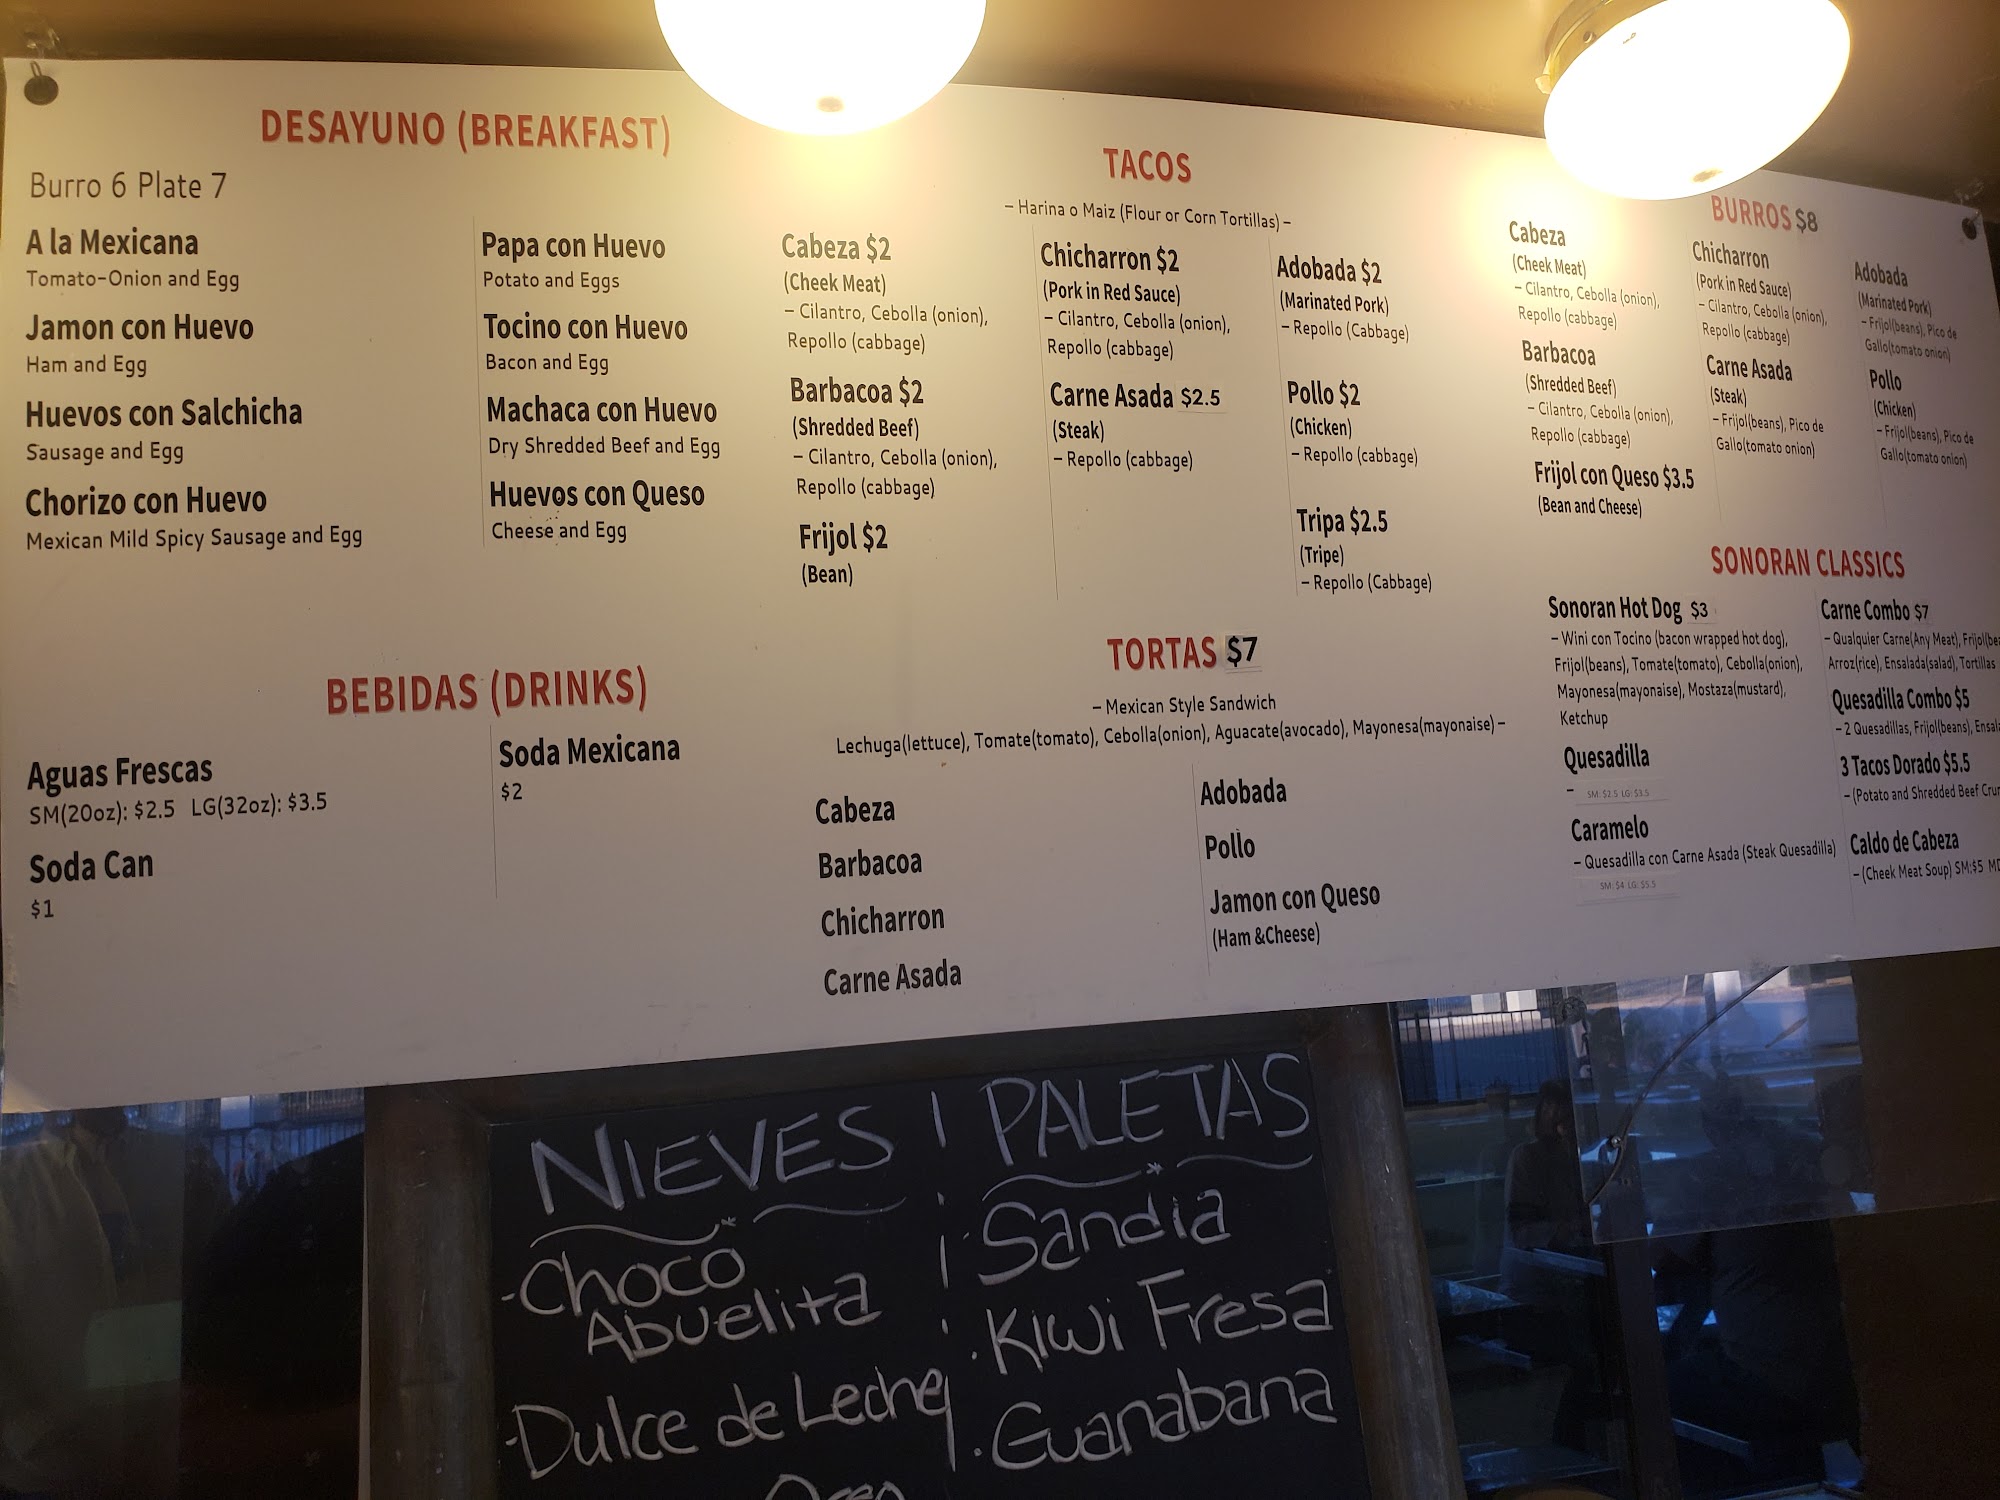 DESAYUNO (BREAKFAST)
Burro 6 Plate 7
A la Mexicana
Tomato-Onion and Egg
Jamon con Huevo
Ham and Egg
Huevos con Salchicha
Sausage and Egg
Chorizo con Huevo
Mexican Mild Spicy Sausage and Egg
Papa con Huevo
Potato and Eggs
Tocino con Huevo
Bacon and Egg
Machaca con Huevo
Dry Shredded Beef and Egg
Huevos con Queso
Cheese and Egg
BEBIDAS (DRINKS)
Aguas Frescas
SM(20oz): $2.5 LG(32oz): $3.5
Soda Can
$1
Soda Mexicana
$2
TACOS
– Harina o Maiz (Flour or Corn Tortillas) –
Cabeza $2
(Cheek Meat)
– Cilantro, Cebolla (onion),
Repollo (cabbage)
Barbacoa $2
(Shredded Beef)
– Cilantro, Cebolla (onion),
Repollo (cabbage)
Frijol $2
(Bean)
Chicharron $2
(Pork in Red Sauce)
– Cilantro, Cebolla (onion),
Repollo (cabbage)
Carne Asada $2.5
(Steak)
– Repollo (cabbage)
Adobada $2
(Marinated Pork)
– Repollo (Cabbage)
Pollo $2
(Chicken)
– Repollo (cabbage)
Tripa $2.5
(Tripe)
– Repollo (Cabbage)
TORTAS $7
– Mexican Style Sandwich
Lechuga(lettuce), Tomate(tomato), Cebolla(onion), Aguacate(avocado), Mayonesa(mayonaise) –
Cabeza
Barbacoa
Chicharron
Carne Asada
Adobada
Pollo
Jamon con Queso
(Ham &Cheese)
BURROS $8
Cabeza
(Cheek Meat)
– Cilantro, Cebolla (onion),
Repollo (cabbage)
Barbacoa
(Shredded Beef)
– Cilantro, Cebolla (onion),
Repollo (cabbage)
Frijol con Queso $3.5
(Bean and Cheese)
Chicharron
(Pork in Red Sauce)
– Cilantro, Cebolla (onion),
Repollo (cabbage)
Carne Asada
(Steak)
– Frijol(beans), Pico de
Gallo(tomato onion)
Adobada
(Marinated Pork)
– Frijol(beans), Pico de
Gallo(tomato onion)
Pollo
(Chicken)
– Frijol(beans), Pico de
Gallo(tomato onion)
SONORAN CLASSICS
Sonoran Hot Dog $3
– Wini con Tocino (bacon wrapped hot dog),
Frijol(beans), Tomate(tomato), Cebolla(onion),
Mayonesa(mayonaise), Mostaza(mustard),
Ketchup
Quesadilla
– SM: $2.5 LG: $3.5
Caramelo
– Quesadilla con Carne Asada (Steak Quesadilla)
SM: $4 LG: $5.5
Carne Combo $7
– Qualquier Carne(Any Meat), Frijol(bea
Arroz(rice), Ensalada(salad), Tortillas
Quesadilla Combo $5
– 2 Quesadillas, Frijol(beans), Ensala
3 Tacos Dorado $5.5
– (Potato and Shredded Beef Crun
Caldo de Cabeza
– (Cheek Meat Soup) SM:$5 MD
NIEVES
- Choco
Abuelita
- Dulce de Leche
Oreo
PALETAS
· Sandia
· Kiwi Fresa
· Guanabana